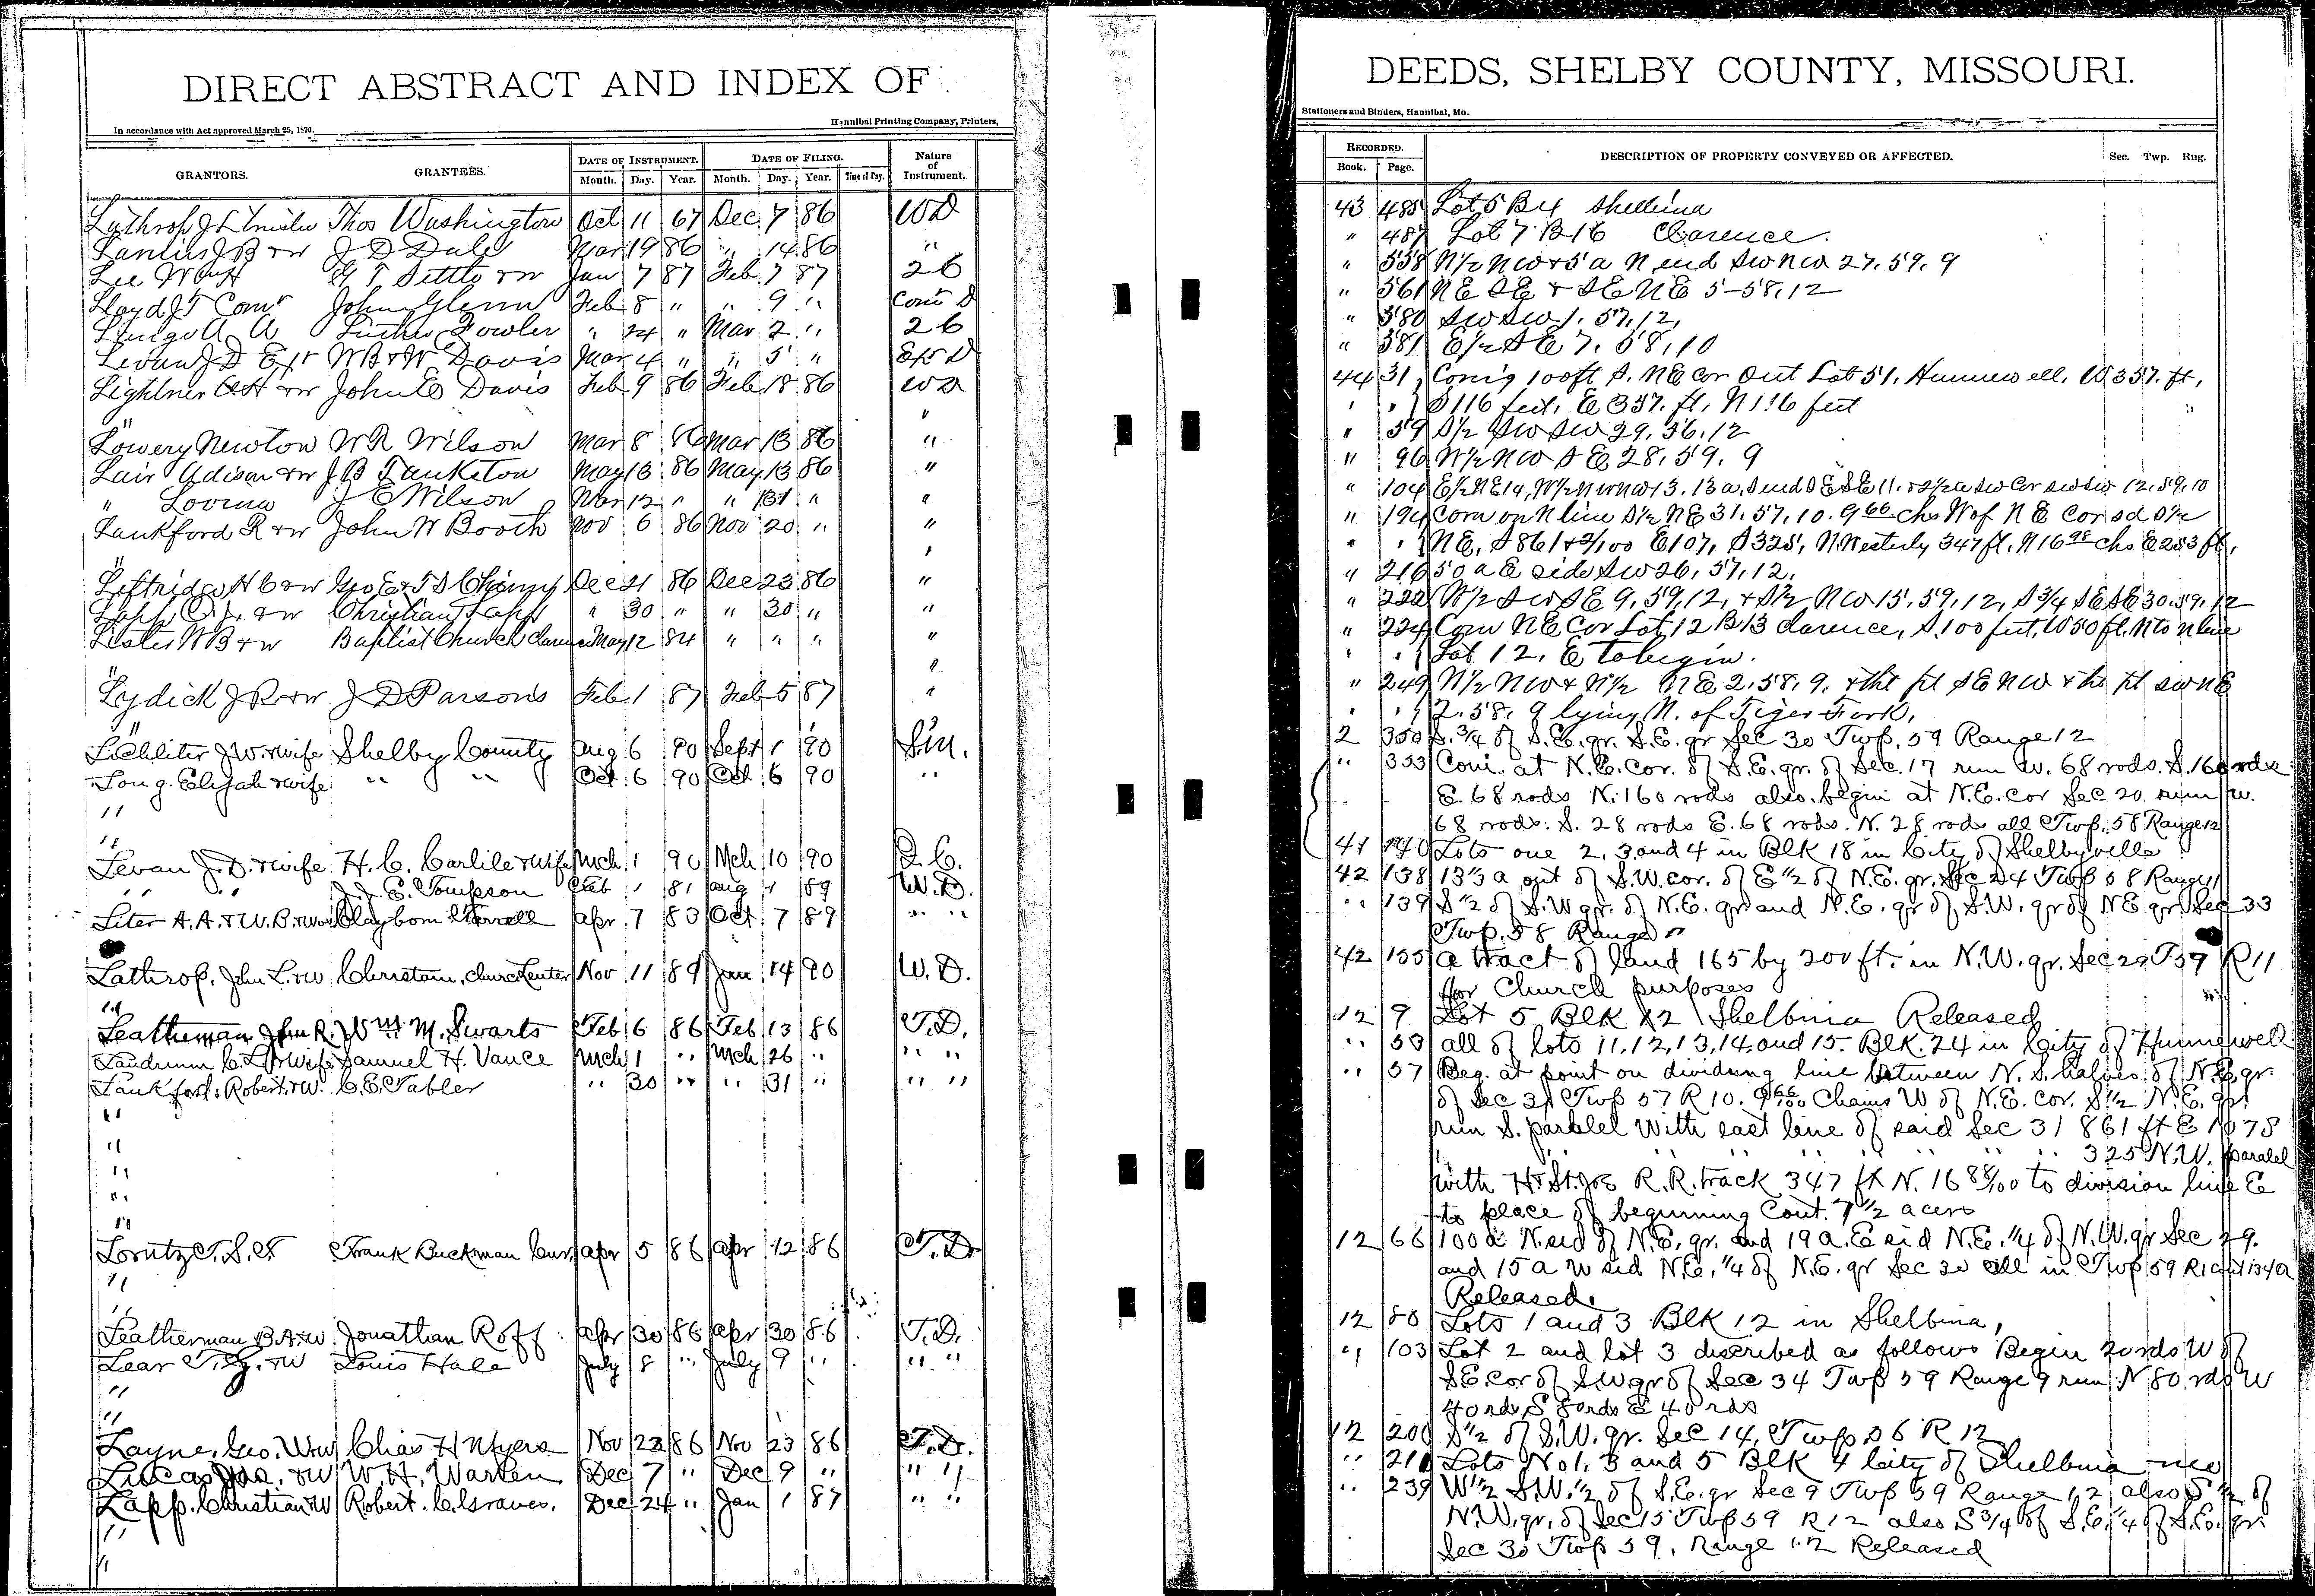 DIRECT ABSTRACT AND INDEX OF
In accordance with Act approved March 25, 1870.
Hannibal Printing Company, Printers,
GRANTORS. GRANTEES. DATE OF INSTRUMENT. DATE OF FILING. Nature of Instrument.
Month. Day. Year. Month. Day. Year. Time of Day.
Lathrop J L Trustee Thos Washington Oct 11 67 Dec 7 86 WD
Lantius J B + w J D Dale Mar 19 86 " 14 86 "
Lee Wm H G T Settle + w Jan 7 87 Feb 7 87 26
Lloyd J T Comr John Glenn Feb 8 " " 9 " Com D
A A Luther Fowler " 24 " Mar 2 " 26
Levan J D Exr W B + W Davis Mar 4 " " 5 " Exr D
Lightner A H + w John E Davis Feb 9 86 Feb 18 86 WD
" "
Lowery Newton W R Wilson Mar 8 86 Mar 13 86 "
Lair Adison + w J B Tanketon May 13 86 May 13 86 "
" Lovina J E Wilson Mar 12 " " 31 " "
Lankford R + w John W Booth Nov 6 86 Nov 20 " "
" "
Leftridge H C + w Geo E + T S Dec 21 86 Dec 23 86 "
Lapp C + w Christian Lapp " 30 " " 30 " "
Lister W B + w Baptist Church Clarence May 12 84 " " " "
" "
Lydick J R + w J D Parsons Feb 1 87 Feb 5 87 "
"
Lichliter J W. + wife Shelby County Aug 6 90 Sept 1 90 Sm.
Long. Elijah + wife " " Oct 6 90 Oct 6 90 "
"
"
Levan J. D. + wife H. C. Carlile + wife Mch 1 90 Mch 10 90 Q. C.
" " J. E. Tompson Feb 1 81 Aug 1 89 W. D.
Liter A. A. + W. B. + wives Clayborn Terrell Apr 7 83 Oct. 7 89 " "
Lathrop. John L. + w Christain Church Lenter Nov 11 89 Jan 14 90 W. D.
"
Leatherman John R. Wm. M. Swarts Feb 6 86 Feb 13 86 T. D.
Landrum C. L + wife Samuel H. Vance Mch 1 " Mch 26 " " "
Lankford. Robert. + w. C. E. Tabler " 30 " " 31 " " "
"
"
"
"
"
Lorutz T. S. F Frank Buckman Cur. Apr 5 86 Apr 12 86 T. D.
"
"
Leatherman B. A. + w Jonathan Roff Apr 30 86 Apr 30 86 T. D.
Lear T. G. + w Louis Hale July 8 " July 9 " " "
"
"
Layne. Geo. W + w Chas H Myers Nov 23 86 Nov 23 86 T. D.
Lucas Jas. + w W. H. Warren Dec 7 " Dec 9 " " "
Lapp. Christian + w Robert. C. Graves. Dec 24 " Jan 1 87 " "
"
"
DEEDS, SHELBY COUNTY, MISSOURI.
Stationers and Binders, Hannibal, Mo.
RECORDED. DESCRIPTION OF PROPERTY CONVEYED OR AFFECTED. Sec. Twp. Rng.
Book. Page.
43 485 Lot 5 B 4 Shelbina
" 487 Lot 7 B 16 Clarence.
" 558 N/2 NW + 5 a N end SW NW 27. 59. 9
" 561 NE SE + SE NE 5-58.12
" 580 SW SW 1. 57.12,
" 581 E/2 SE 7. 58.10
44 31 Com'g 100ft S. NE cor Out Lot 51. Hunnewell. W 357. ft,
" " S 116 feet. E 357. ft. N 116 feet
" 59 S/2 SW SW 29. 56.12
" 96 W/2 NW SE 28. 59. 9
" 104 E/2 NE 14, W/2 NW NW 13. 13 a, S end SE SE 11. + 2/2 a SW Cor SW SW 12.59.10
" 194 Com on N line S/2 NE 31. 57. 10. 9 66 chs W of NE Cor sd S/2
" " NE, S 861 + 2/100 E 107, S 325, N. Westerly 347 ft. N 16 98 chs E 253 ft,
" 216 50 a E side SW 26. 57. 12.
" 222 W/2 SW SE 9. 59. 12, + S/2 NW 15. 59. 12, S 3/4 SE SE 30. 59. 12
" 224 Com NE Cor Lot 12 B 13 Clarence, S. 100 feet, W 50 ft. N to N line
" " Lot 12. E to begin.
" 249 N/2 NW + N/2 NE 2. 58. 9. + tht pt SE NW + tht pt SW NE
" " 2. 58. 9 lying N. of Tiger Fork,
2 350 S. 3/4 of S. E. qr. S. E. qr Sec 30 Twp. 59 Range 12
" 353 Com. at N. E. cor. of S. E. qr. of Sec. 17 run W. 68 rods. S. 160 rods
E. 68 rods N. 160 rods also. begin at N. E. cor Sec 20 run W.
68 rods. S. 28 rods E. 68 rods. N. 28 rods all Twp. 58 Range 12
41 140 Lots one 2. 3 and 4 in Blk 18 in City of Shelbyville
42 138 13 1/3 a out of S. W. cor. of E 1/2 of N. E. qr. Sec 24 Twp 58 Range 11
" 139 S 1/2 of S. W qr. of N. E. qr. and N. E. qr of S. W. qr of NE qr. Sec 33
Twp. 58 Range 11
42 155 A tract of land 165 by 200 ft. in N. W. qr. Sec 29 T 59 R 11
for Church purposes
12 9 Lot 5 Blk 12 Shelbina Released
" 53 all of lots 11, 12, 13, 14, and 15. Blk. 24 in City of Hunnewell
" 57 Beg. at point on dividing line between N. S. halves of N. E. qr.
of Sec 31 Twp 57 R 10. 9 66/100 Chains W of N. E. cor. S 1/2 N. E. qr.
run S. paralel with east line of said Sec 31 861 ft E 107 S
" " " " " " 325 N. W. paralel
with H + St. Joe R. R. track 347 ft N. 16 88/100 to division line E
to place of beginning Cont. 7 1/2 acers
12 66 100 a N. sid of N. E. qr. and 19 a. E sid N. E. 1/4 of N. W. qr Sec 29.
and 15 a W sid N. E. 1/4 of N. E. qr Sec 30 all in Twp 59 R 10
Released.
12 80 Lots 1 and 3 Blk 12 in Shelbina,
" 103 Lot 2 and lot 3 discribed as follows Begin 20 rds W of
S E. cor of S. W qr of Sec 34 Twp 59 Range 9 run N 80 rds W
40 rds S 80 rds E 40 rds
12 200 S 1/2 of S. W. qr. Sec 14. Twp 56 R 12
" 210 Lots No 1, 3 and 5 Blk 4 City of Shelbina
" 239 W 1/2 S. W. 1/2 of S. E. qr Sec 9 Twp 59 Range 12 also S 1/2 of
N. W. qr. of Sec 15 Twp 59 R 12 also S 3/4 of S. E. 1/4 of S. E. qr.
Sec 30 Twp 59. Range 12 Released